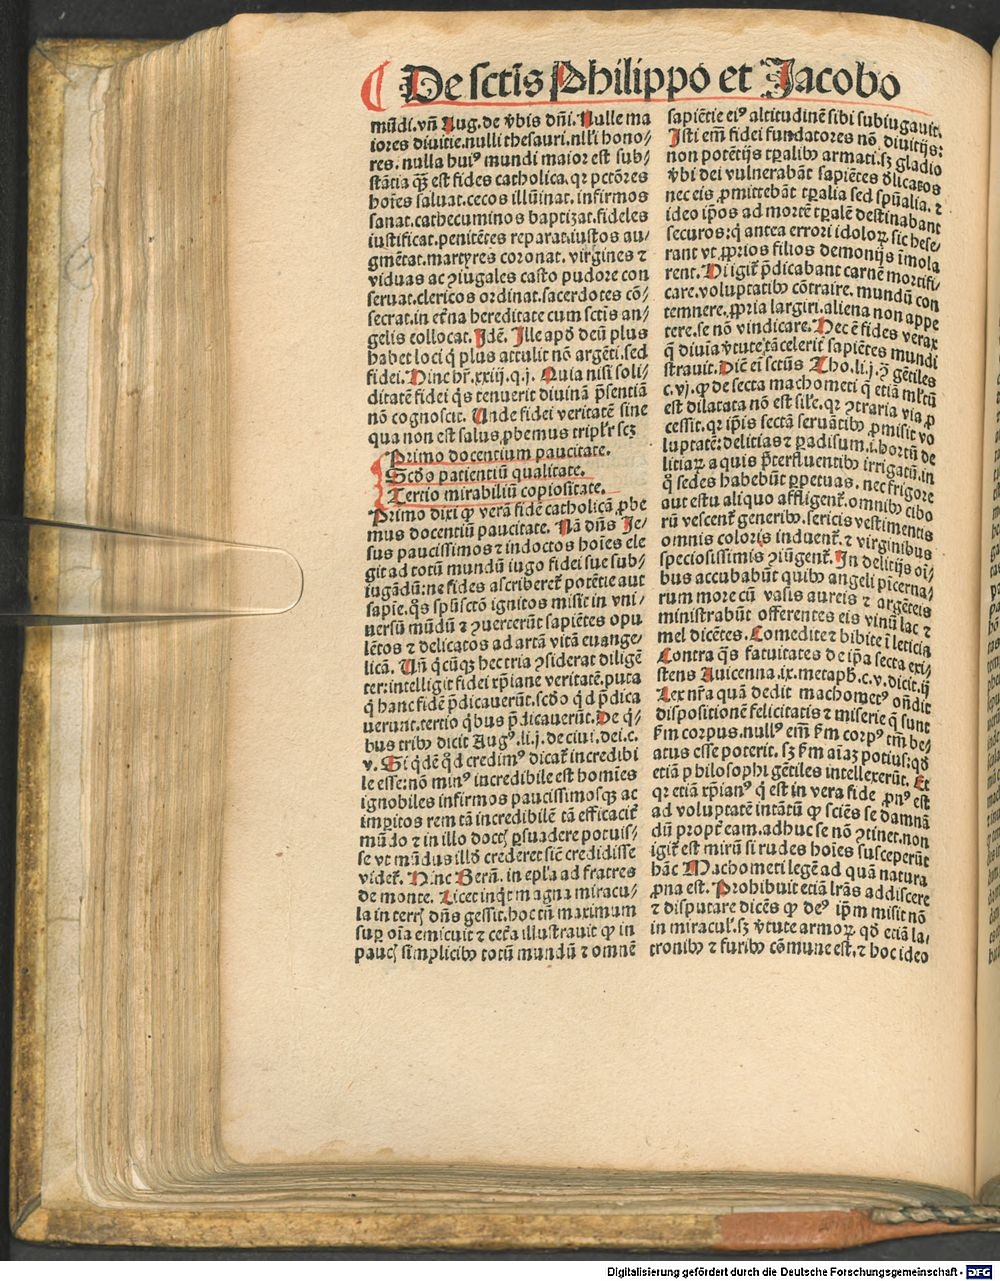 De sctīs Philippo et Jacobo
mūdi. vn̄ Aug. de v̄bis dn̄i. Nulle ma
iores diuitie. nulli thesauri. nll'i hono-
res. nulla huiꝰ mundi maior est sub-
stātia qꝫ est fides catholica. qꝛ pctōres
hoīes saluat. cecos illūinat. infirmos
sanat. cathecuminos baptizat. fideles
iustificat. penitētes reparat. iustos au-
gmētat. martyres coronat. virgines ⁊
viduas ac ꝯiugales casto pudore con
seruat. clericos ordinat. sacerdotes cō-
secrat. in et̄na hereditate cum sctīs an-
gelis collocat. Idē. Ille apd̄ deū plus
habet loci q̄ plus attulit nō argēti. sed
fidei. Hinc hr̄. xxiij. q. j. Quia nisi soli-
ditatē fidei q̄s tenuerit diuinā p̄sentiā
nō cognoscit. Unde fidei veritatē sine
qua non est salus ꝓbemus tripl'r scꝫ
Primo docentium paucitate.
Scd̄o patientiū qualitate.
Tertio mirabiliū copiositate.
Primo dixi ꝙ verā fidē catholicā ꝓbe
mus docentiū paucitate. Nā dn̄s Je-
sus paucissimos ⁊ indoctos hoīes ele
git ad totū mundū iugo fidei sue sub-
iugādū: ne fides ascriberet̄ potētie aut
sapīe. q̄s spūsctō ignitos misit in vni-
uersū mūdū ⁊ ꝯuerterūt sapiētes opu
lētos ⁊ delicatos ad artā vitā euange-
licā. Un̄ q̄cūqꝫ hec tria ꝯsiderat diligē
ter: intelligit fidei xp̄iane veritatē. puta
q̄ hanc fidē p̄dicauerūt. scd̄o qd p̄dica
uerunt. tertio q̄bus p̄dicauerūt. De q̄-
bus tribꝰ dicit Augꝰ. li. j. de ciui. dei. c.
v. Si qdē qd̄ credimꝰ dicat̄ incredibi
le esse: nō minꝰ incredibile est homīes
ignobiles infirmos paucissimosqꝫ ac
impitos rem tā incredibilē tā efficacit̄
mūdo ⁊ in illo doctꝭ ꝑsuadere potuis-
se vt mūdus illd̄ crederet sic̄ credidisse
videt̄. Hinc Bern̄. in epl'a ad fratres
de monte. Licet inq̇t magna miracu-
la in terrꝭ dn̄s gessit. hoc tn̄ maximum
sup oīa emicuit ⁊ cet̄a illustrauit ꝙ in
paucꝭ simplicibꝰ totū mundū ⁊ omnē
sapiētie eiꝰ altitudinē sibi subiugauit.
Isti em̄ fidei fundatores nō diuitijs:
non potētijs tꝑalibꝰ armati. sꝫ gladio
v̄bi dei vulnerabāt sapiētes ⁊ dlicatos
nec eis ꝓmittebāt tꝑalia sed spūalia. ⁊
ideo ip̄os ad mortē tꝑalē destinabant
securos: q̄ antea errori idoloꝝ sic hese-
rant vt ꝓprios filios demonijs īmola
rent. Hi igit̄ p̄dicabant carnē mortifi-
care. voluptatibꝰ cōtraire. mundū con
temnere. ꝓpria largiri. aliena non appe
tere. se nō vindicare. Hec ē fides verax
q̄ diuīa v̄tute tā celerit̄ sapiētes mundi
strauit. Dic̄ ei sctūs Tho. li. j. ꝯ gētiles
c. vj. ꝙ de secta machometi q̄ etiā ml'tū
est dilatata nō est sil'e. qꝛ ꝯtraria via ꝓ
cessit. qꝛ ip̄is sectā seruātibꝰ ꝓmisit vo
luptatē: delitias ⁊ padisum. i. hortū de
litiaꝝ aquis p̄terfluentibꝰ irrigatū. in
q̄ sedes habebūt ꝑpetuas. nec frigore
aut estu aliquo affligent̄. omnibꝰ cibo
rū vescent̄ generibꝰ. sericis vestimentis
omnis coloris induent̄. ⁊ virginibus
speciosissimis ꝯiūgent̄. In delitijs oī-
bus accubabūt quibꝰ angeli pīcerna-
rum more cū vasis aureis ⁊ argēteis
ministrabūt offerentes eis vinū lac ⁊
mel dicētes. Comedite ⁊ bibite ī leticia
Contra q̄s fatuitates de ip̄a secta exi-
stens Auicenna. ix. metaph. c. v. dicit. ij
Lex nr̄a quā dedit machometꝰ on̄dit
dispositionē felicitatis ⁊ miserie q̄ sunt
s̄m corpus. nullꝰ em̄ s̄m corpꝰ tm̄ be-
atus esse poterit. sꝫ s̄m aīaꝫ potius: qd̄
etiā philosophi gētiles intellexerūt. Et
qꝛ etiā xp̄ianꝰ q̄ est in vera fide ꝓnꝰ est
ad voluptatē intātū ꝙ sciēs se damnā
dū propt̄ eam. adhuc se nō ꝯtinet. non
igit̄ est mirū si rudes hoīes susceperūt
hāc Machometi legē ad quā natura
ꝓna est. Prohibuit etiā lr̄as addiscere
⁊ disputare dicēs ꝙ deꝰ ip̄m misit nō
in miracul'. sꝫ v̄tute armoꝝ qd̄ etiā la-
tronibꝰ ⁊ furibꝰ cōmune est. ⁊ hoc ideo
Digitalisierung gefördert durch die Deutsche Forschungsgemeinschaft - DFG